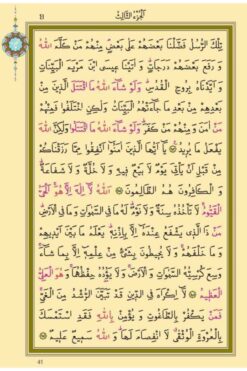 اَلْجُزْءُ الثَّالِثُ
تِلْكَ الرُّسُلُ فَضَّلْنَا بَعْضَهُمْ عَلٰى بَعْضٍ مِنْهُمْ مَنْ كَلَّمَ اللّٰهُ
وَرَفَعَ بَعْضَهُمْ دَرَجَاتٍ وَاٰتَيْنَا عِيسَى ابْنَ مَرْيَمَ الْبَيِّنَاتِ
وَاَيَّدْنَاهُ بِرُوحِ الْقُدُسِ وَلَوْ شَٓاءَ اللّٰهُ مَا اقْتَتَلَ الَّذِينَ مِنْ
بَعْدِهِمْ مِنْ بَعْدِ مَا جَٓاءَتْهُمُ الْبَيِّنَاتُ وَلٰكِنِ اخْتَلَفُوا فَمِنْهُمْ
مَنْ اٰمَنَ وَمِنْهُمْ مَنْ كَفَرَ وَلَوْ شَٓاءَ اللّٰهُ مَا اقْتَتَلُوا وَلٰكِنَّ اللّٰهَ
يَفْعَلُ مَا يُرِيدُ يَٓا اَيُّهَا الَّذِينَ اٰمَنُٓوا اَنْفِقُوا مِمَّا رَزَقْنَاكُمْ
مِنْ قَبْلِ اَنْ يَأْتِيَ يَوْمٌ لَا بَيْعٌ فِيهِ وَلَا خُلَّةٌ وَلَا شَفَاعَةٌ
وَالْكَافِرُونَ هُمُ الظَّالِمُونَ اَللّٰهُ لَٓا اِلٰهَ اِلَّا هُوَ اَلْحَيُّ
الْقَيُّومُ لَا تَأْخُذُهُ سِنَةٌ وَلَا نَوْمٌ لَهُ مَا فِي السَّمٰوَاتِ وَمَا فِي الْاَرْضِ
مَنْ ذَا الَّذِي يَشْفَعُ عِنْدَهُٓ اِلَّا بِاِذْنِهِ يَعْلَمُ مَا بَيْنَ اَيْدِيهِمْ
وَمَا خَلْفَهُمْ وَلَا يُحِيطُونَ بِشَيْءٍ مِنْ عِلْمِهِٓ اِلَّا بِمَا شَٓاءَ
وَسِعَ كُرْسِيُّهُ السَّمٰوَاتِ وَالْاَرْضَ وَلَا يَؤُدُهُ حِفْظُهُمَا وَهُوَ الْعَلِيُّ
الْعَظِيمُ لَٓا اِكْرَاهَ فِي الدِّينِ قَدْ تَبَيَّنَ الرُّشْدُ مِنَ الْغَيِّ
فَمَنْ يَكْفُرْ بِالطَّاغُوتِ وَيُؤْمِنْ بِاللّٰهِ فَقَدِ اسْتَمْسَكَ
بِالْعُرْوَةِ الْوُثْقٰى لَا انْفِصَامَ لَهَا وَاللّٰهُ سَمِيعٌ عَلِيمٌ
41